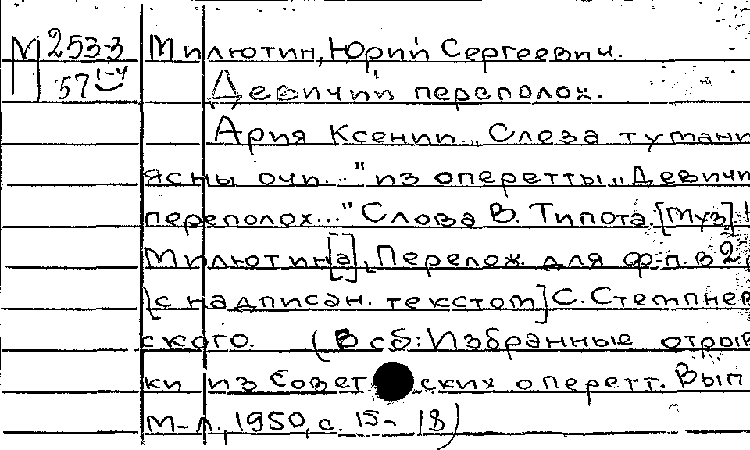 М 253-3 Милютин, Юрий Сергеевич.
57 1-4 Девичий переполох.
Ария Ксении „Слеза тумани
ясны очи..." из оперетты „Девичи
переполох..." Слова В. Типота. [Муз]
Милютин[а], Перелож. для ф-п. в 2
[с надписан. текстом] С. Стемпнев
ского. (В сб: Избранные отрыв
ки из Советских оперетт. Вып
М-Л., 1950, с. 15-18)